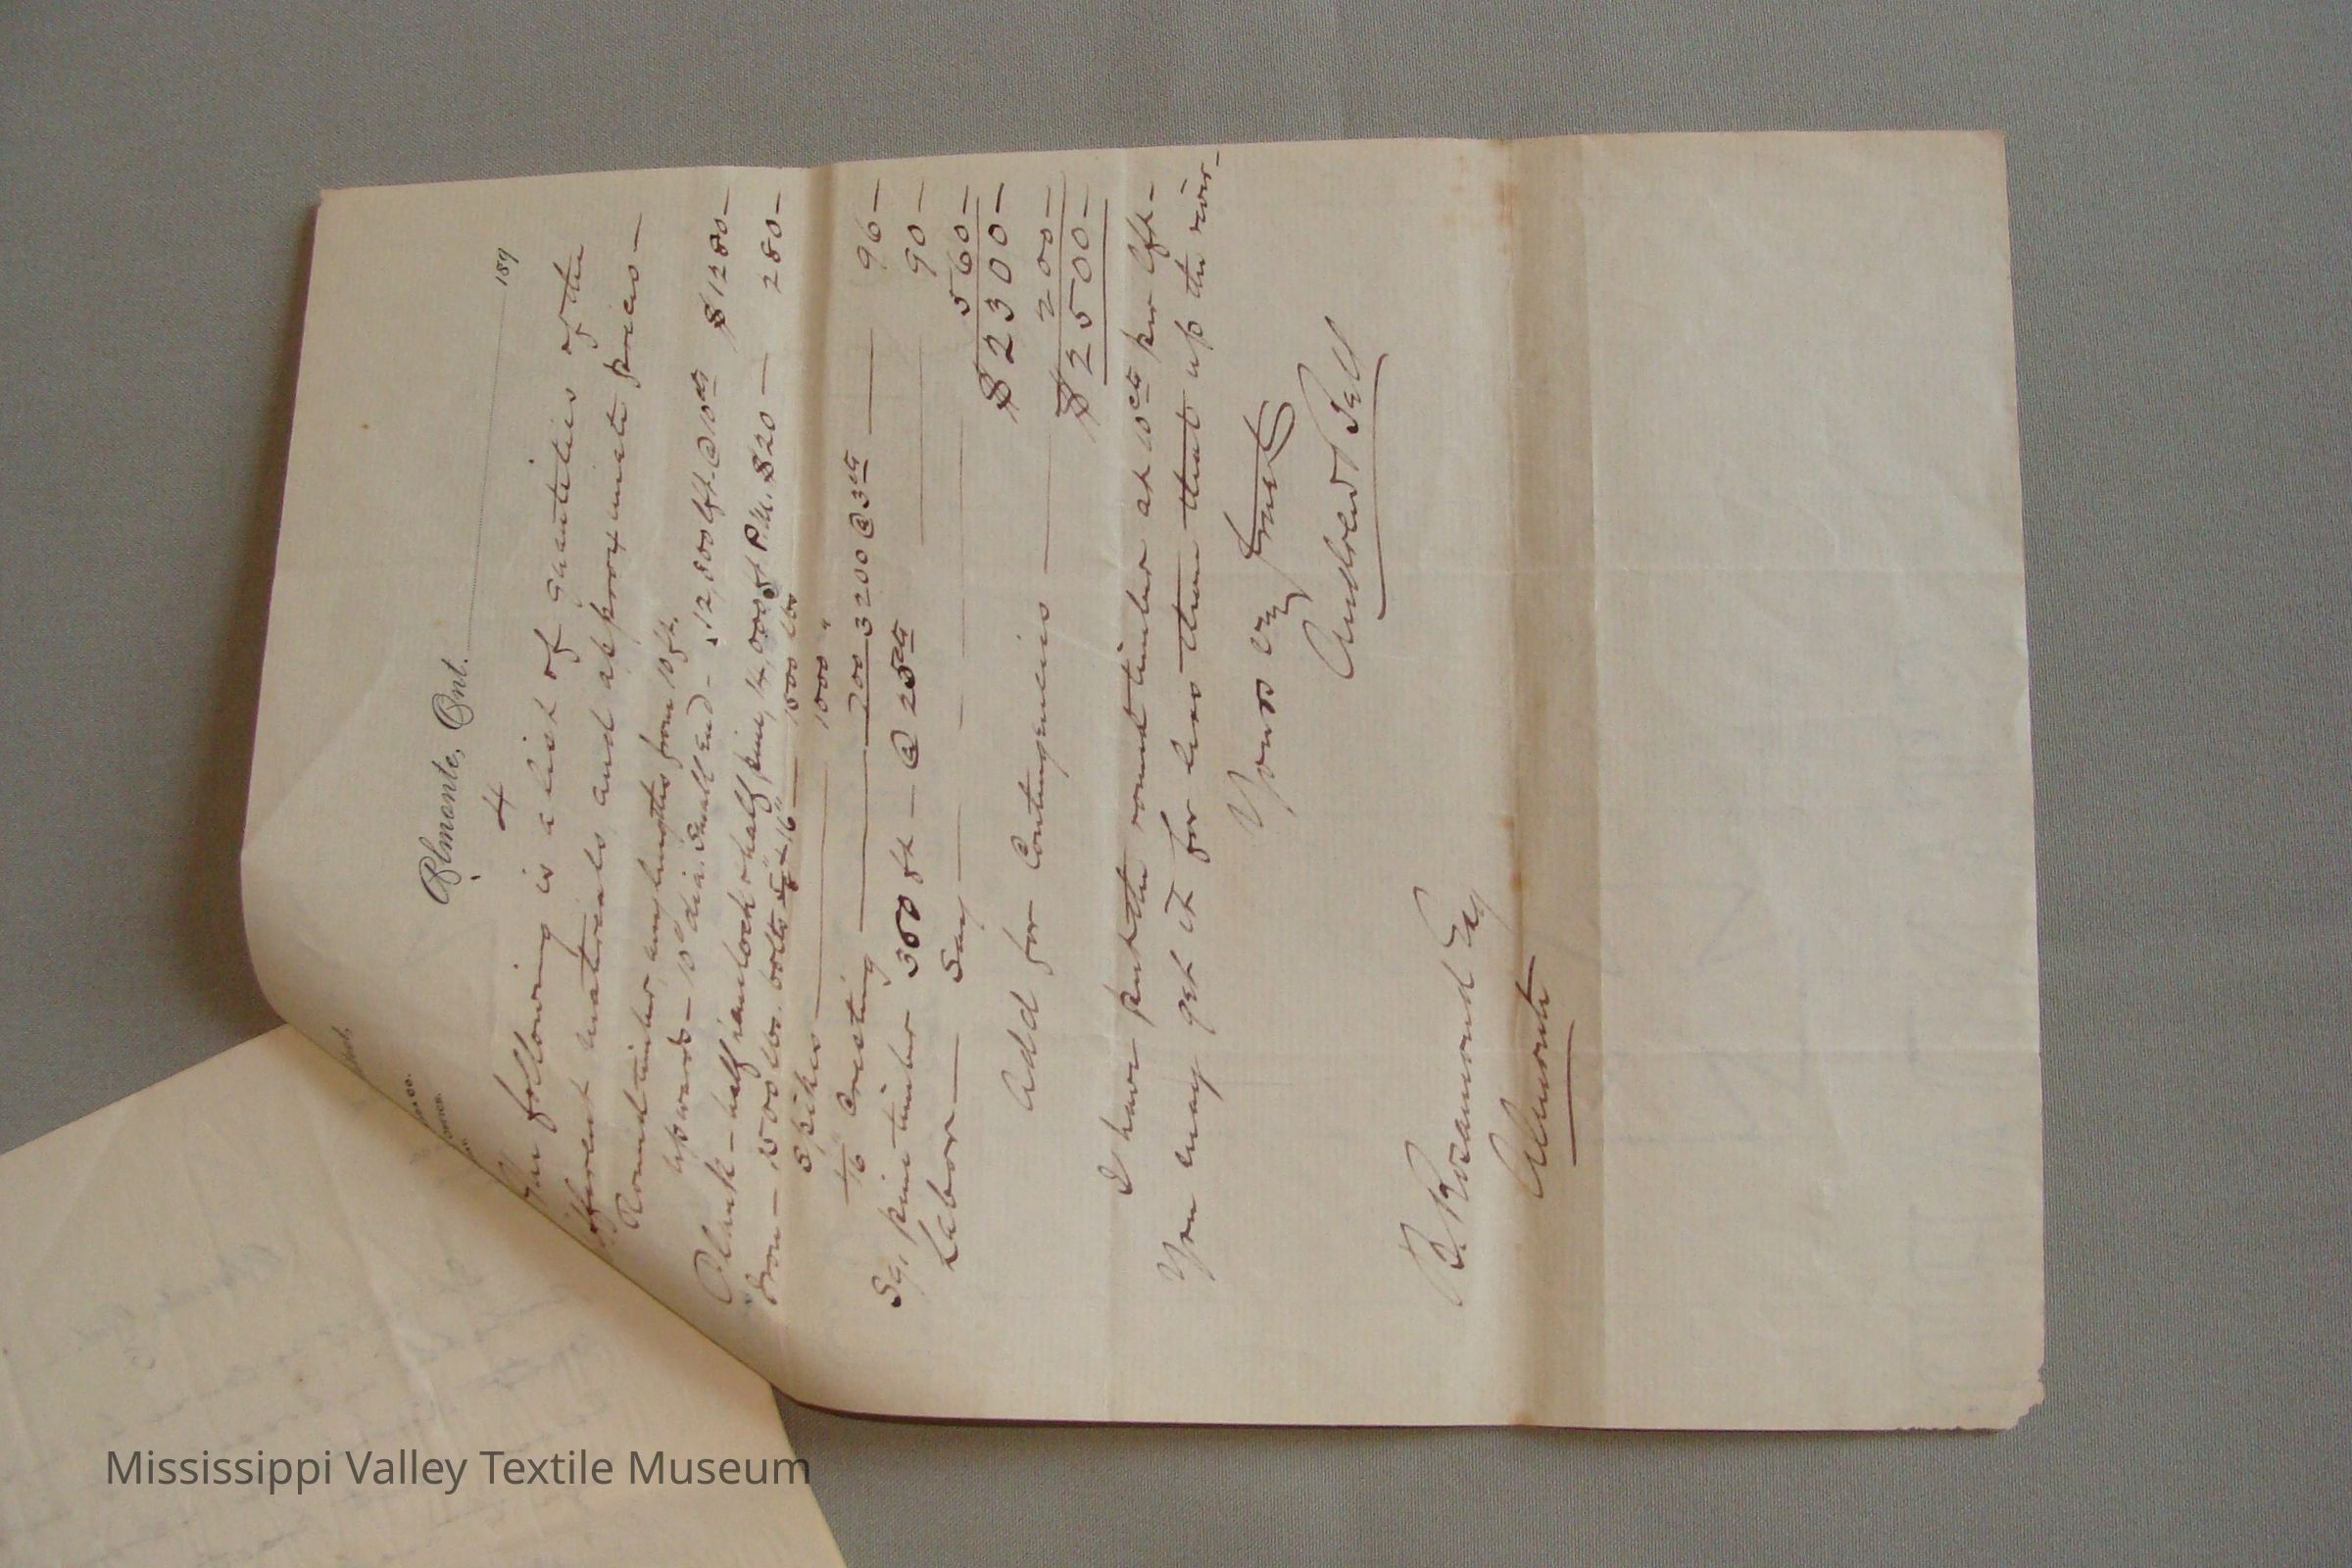 Almonte, Ont. 189
4
The following is a list of quantities of the
different materials and approximate prices —
Round timber, any lengths from 10 ft.
upwards — 10" dia. Small End — 12,800 lft. @ 10cts $1280 —
Plank — half hamlock & half pine, 14,000 ft P.M. $20 — 280 —
Iron — 1500 lbs. bolts 16" — 1500 lbs
Spikes — 1000 "
Cresting — 700 3200 @ 3cts — 96 —
Sq. pine timber 360 ft — @ 25cts 90 —
Labor — Say — 560 —
$2300 —
Add for Contingencies — 200 —
$2500 —
I have put the round timber at 10cts per lft —
You may get it for less than that up the river —
Yours Very Truly
Andrew Bell
B. Rosamond Esq
Almonte
Mississippi Valley Textile Museum